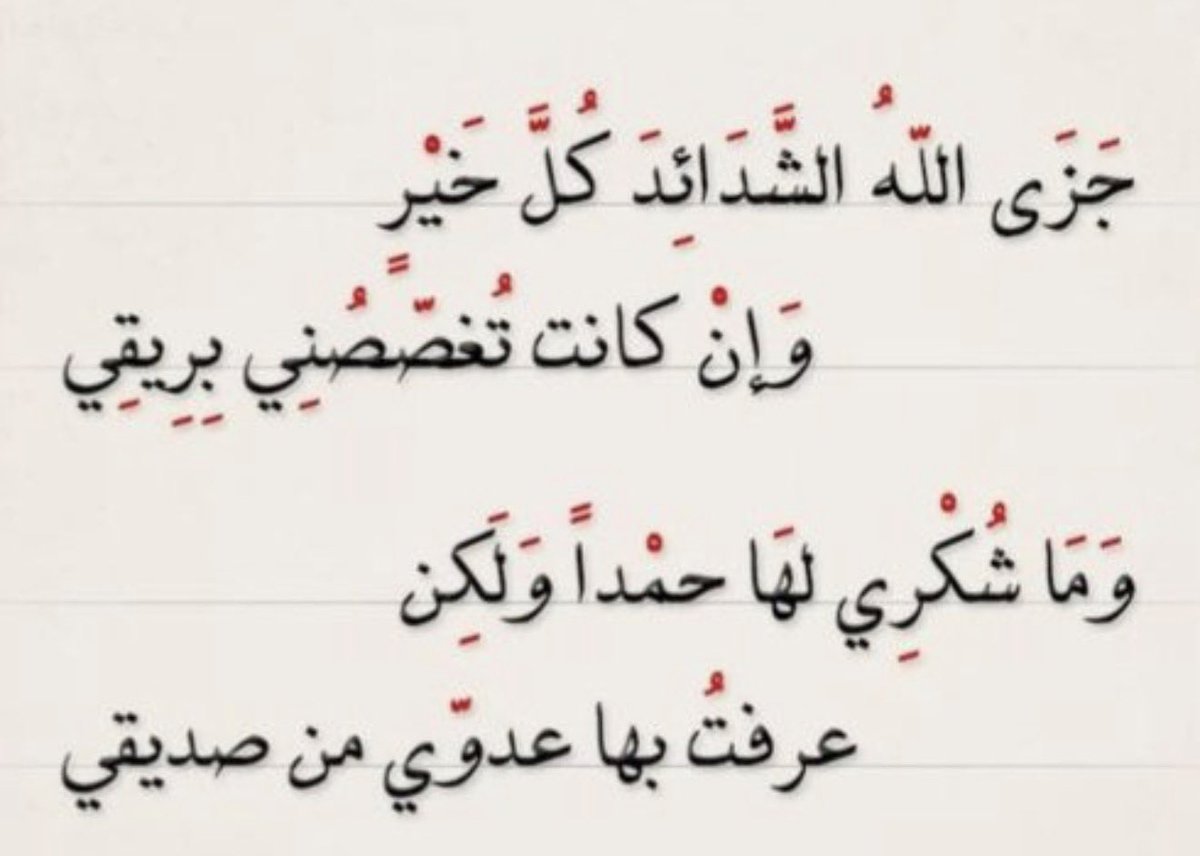 جَزَى اللّهُ الشَّدَائِدَ كُلَّ خَيْر
وَإنْ كانت تُغصّصًُنِي بِرِيقِي
وَمَا شُكْرِي لهَا حمْداً وَلَكِن
عرفتُ بها عدوّي من صديقي